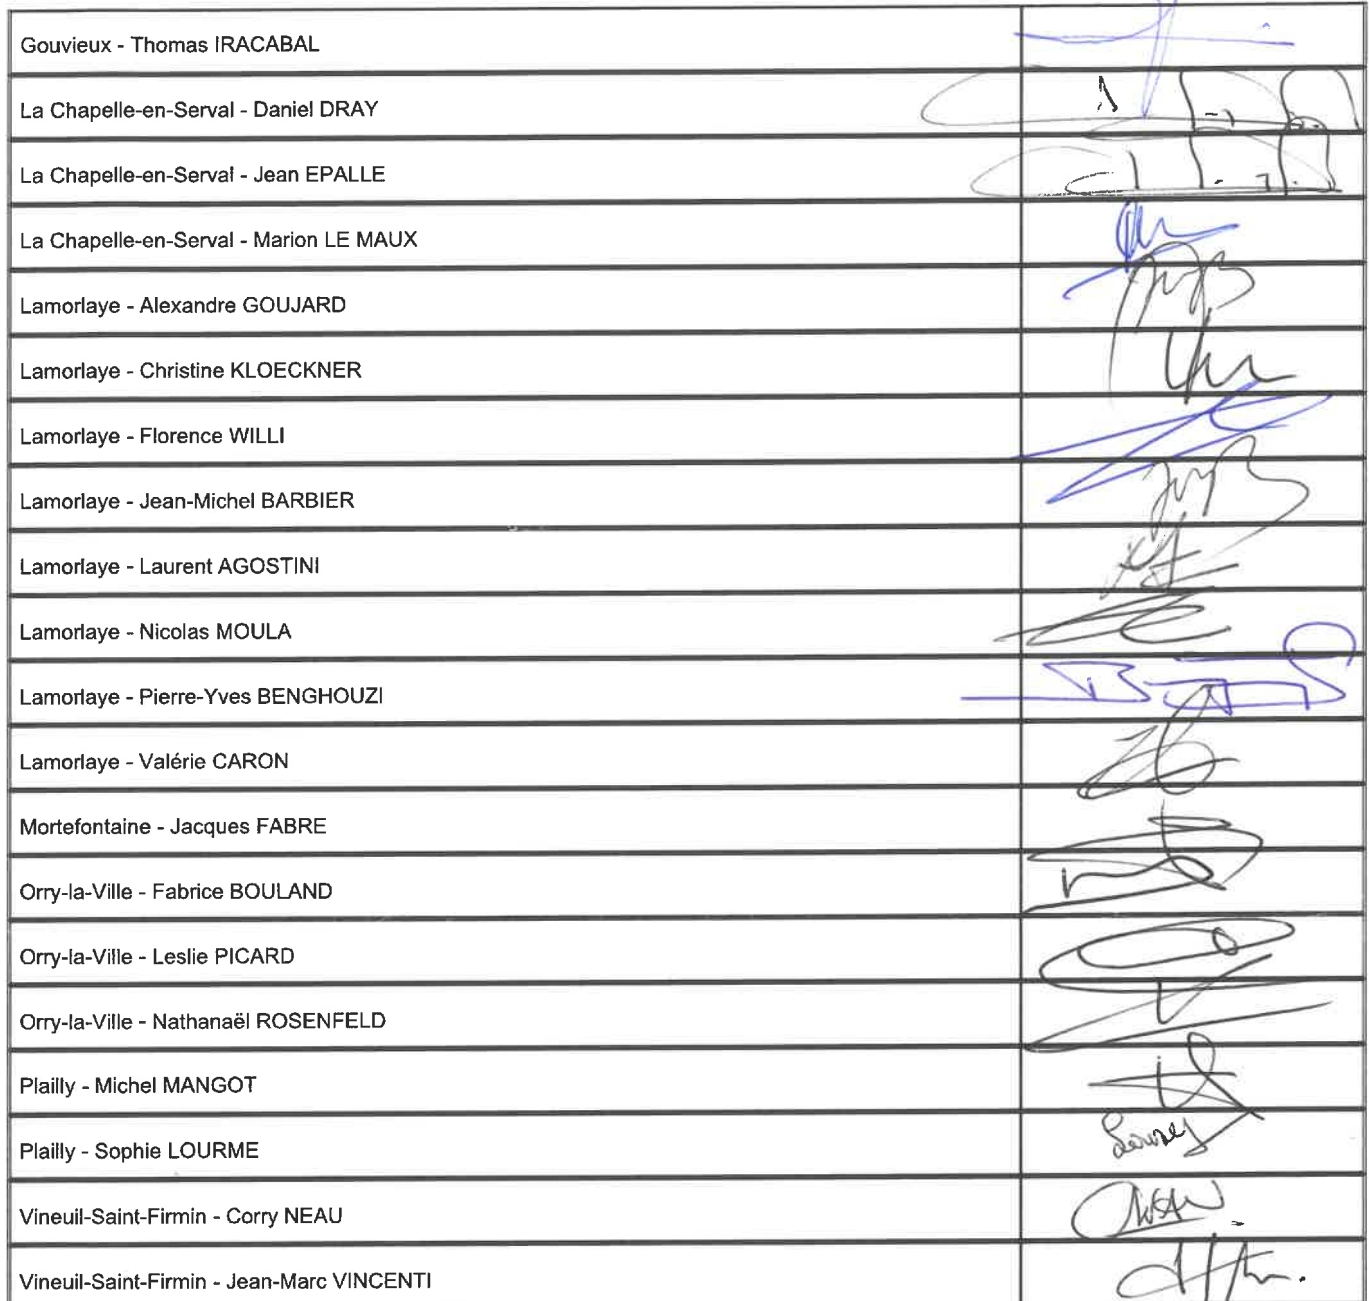 Gouvieux - Thomas IRACABAL
La Chapelle-en-Serval - Daniel DRAY
La Chapelle-en-Serval - Jean EPALLE
La Chapelle-en-Serval - Marion LE MAUX
Lamorlaye - Alexandre GOUJARD
Lamorlaye - Christine KLOECKNER
Lamorlaye - Florence WILLI
Lamorlaye - Jean-Michel BARBIER
Lamorlaye - Laurent AGOSTINI
Lamorlaye - Nicolas MOULA
Lamorlaye - Pierre-Yves BENGHOUZI
Lamorlaye - Valérie CARON
Mortefontaine - Jacques FABRE
Orry-la-Ville - Fabrice BOULAND
Orry-la-Ville - Leslie PICARD
Orry-la-Ville - Nathanaël ROSENFELD
Plailly - Michel MANGOT
Plailly - Sophie LOURME
Vineuil-Saint-Firmin - Corry NEAU
Vineuil-Saint-Firmin - Jean-Marc VINCENTI